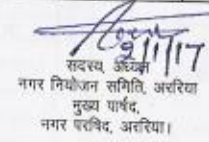 9/1/17
सदस्य, अध्यक्ष
नगर नियोजन समिति, अररिया
मुख्य पार्षद,
नगर परिषद, अररिया।